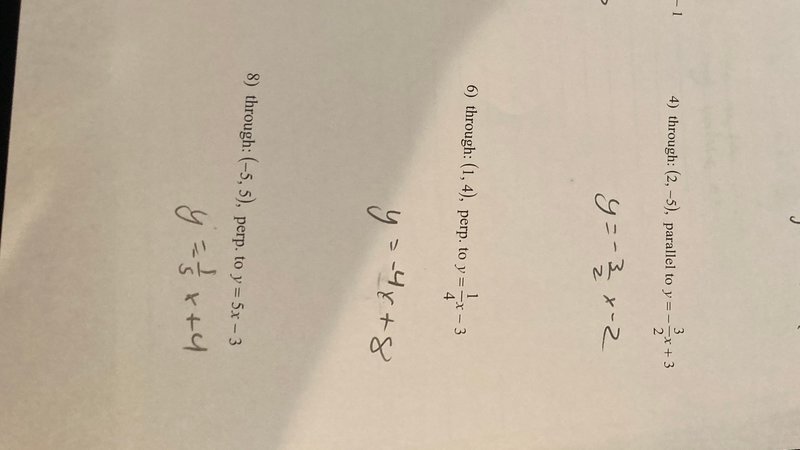 - 1
4) through: (2, -5), parallel to y = -3/2x + 3
y = -3/2 x - 2
6) through: (1, 4), perp. to y = 1/4x - 3
y = -4x + 8
8) through: (-5, 5), perp. to y = 5x - 3
y = 1/5 x + 4